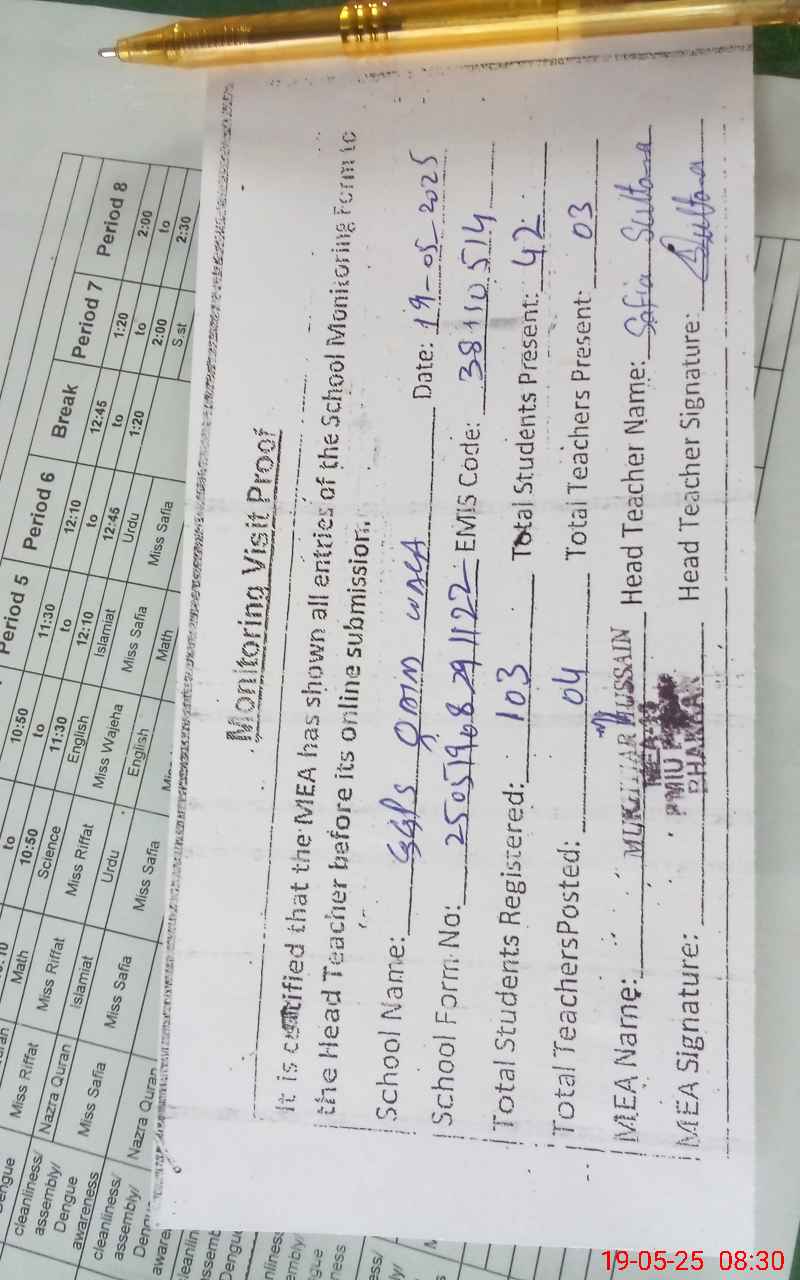 Monitoring Visit Proof
It is certified that the MEA has shown all entries of the School Monitoring Form to
the Head Teacher before its online submission.
School Name: GGPS QAIM WALA Date: 19-05-2025
School Form No: EMIS Code: 38110514
Total Students Registered: 103 Total Students Present: 42
Total TeachersPosted: 04 Total Teachers Present: 03
MEA Name: MUKHTIAR HUSSAIN Head Teacher Name: Safia Sultana
MEA Signature: PMIU BHAKKAR Head Teacher Signature: Sultana
Period 5 Period 6 Break Period 7 Period 8
to 10:50 10:50 to 11:30 11:30 to 12:10 12:10 to 12:45 12:45 to 1:20 1:20 to 2:00 2:00 to 2:30
Math Science English Islamiat Urdu S.st
Miss Riffat Miss Riffat Miss Riffat Miss Wajeha Miss Safia Miss Safia
cleanliness/ assembly/ Dengue awareness Nazra Quran Islamiat Urdu English Math
Miss Safia Miss Safia Miss Safia
cleanliness/ assembly/ Nazra Quran
19-05-25 08:30